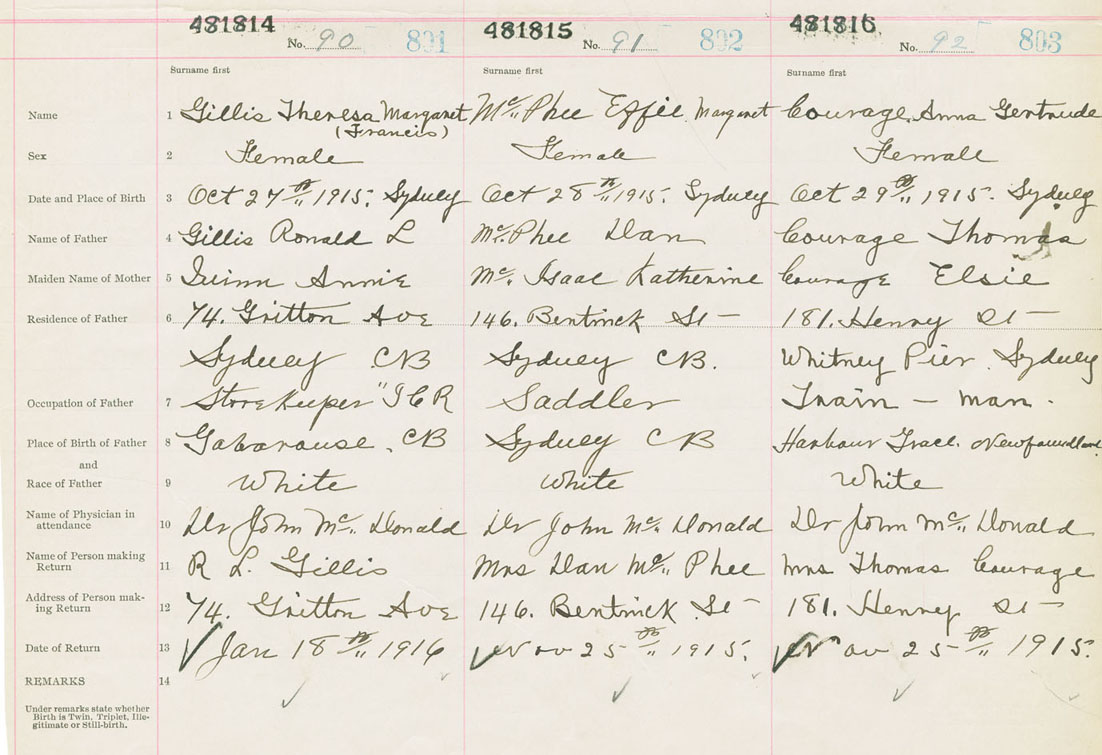 481814 481815 481816
No. 90 801 No. 91 802 No. 92 803
Surname first Surname first Surname first
Name 1 Gillis Theresa Margaret Mc Phee Effie Margaret Courage Anna Gertrude
(Francis)
Sex 2 Female Female Female
Date and Place of Birth 3 Oct 27th 1915. Sydney Oct 28th 1915. Sydney Oct 29th 1915. Sydney
Name of Father 4 Gillis Ronald L Mc Phee Dan Courage Thomas
Maiden Name of Mother 5 Quinn Annie Mc Isaac Katherine Courage Elsie
Residence of Father 6 74. Gritton Ave 146. Bentinck St 181. Henry St
Sydney CB Sydney CB. Whitney Pier. Sydney
Occupation of Father 7 Storekeeper "ICR Saddler Train - man.
Place of Birth of Father 8 Gabarouse. CB Sydney CB Harbour Grace. Newfoundland.
and
Race of Father 9 White White White
Name of Physician in
attendance 10 Dr John Mc Donald Dr John Mc Donald Dr John Mc Donald
Name of Person making
Return 11 R L. Gillis Mrs Dan Mc Phee Mrs Thomas Courage
Address of Person mak-
ing Return 12 74. Gritton Ave 146. Bentinck St 181. Henry St
Date of Return 13 Jan 18th 1916 Nov 25th 1915. Nov 25th 1915.
REMARKS 14
Under remarks state whether
Birth is Twin, Triplet, Ille-
gitimate or Still-birth.